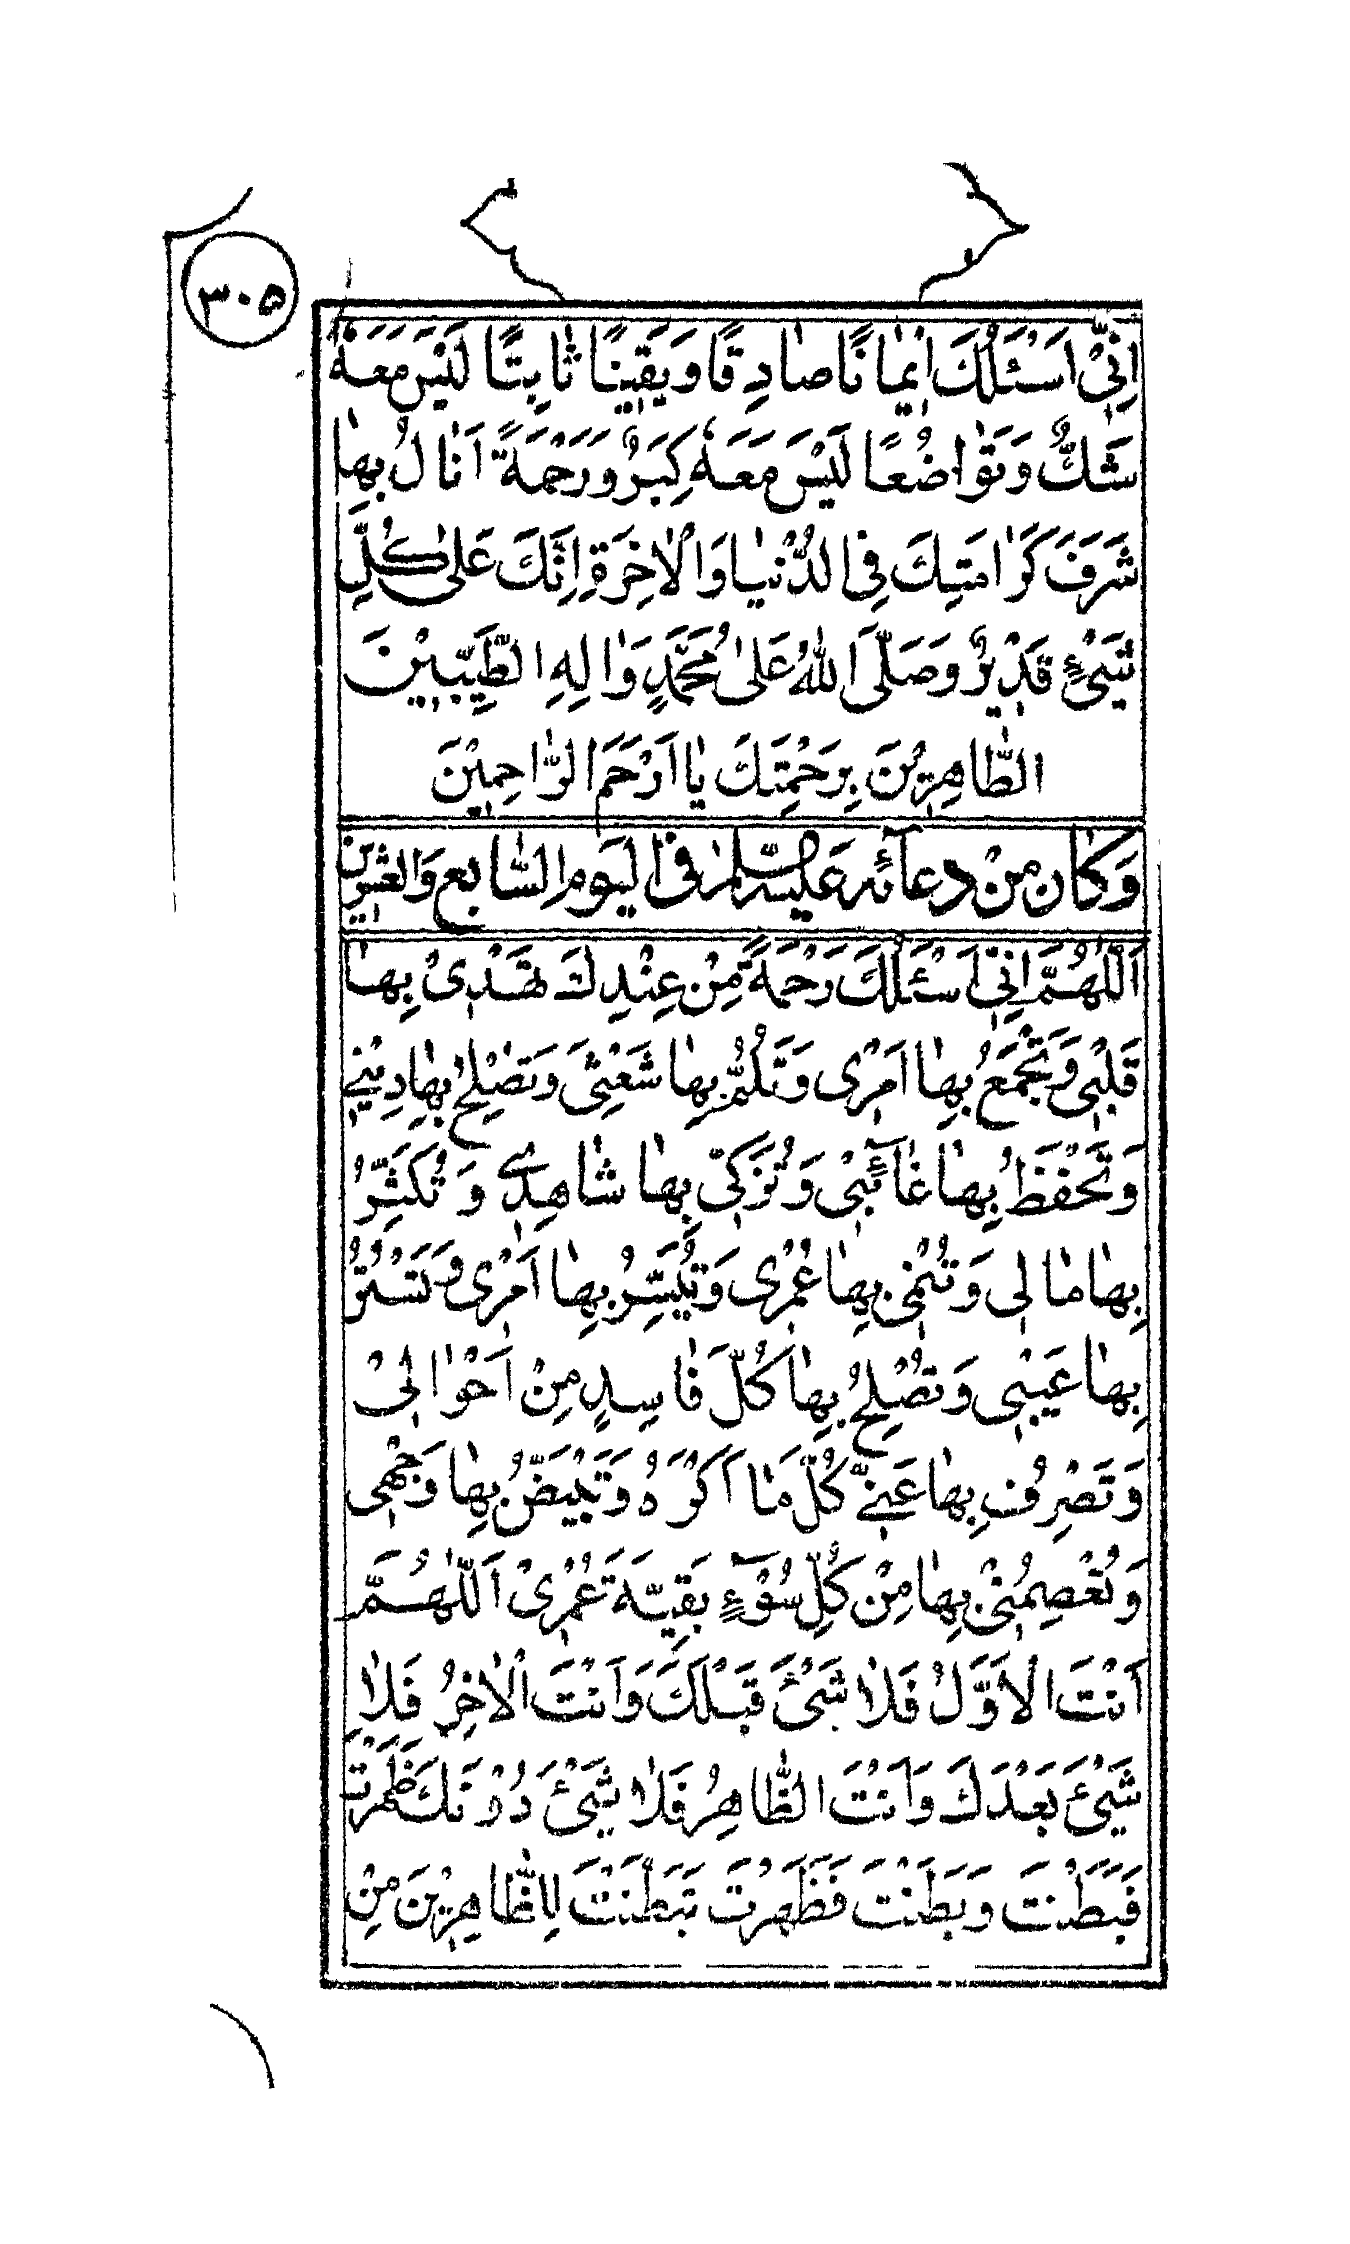 ٣٠٥
اِنِّيْ اَسْئَلُكَ اِيْمٰانًا صٰادِقًا وَ يَقِيْنًا ثٰابِتًا لَيْسَ مَعَهُ
شَكٌّ وَ تَوٰاضُعًا لَيْسَ مَعَهُ كِبَرٌ وَ رَحْمَةً اَنٰالُ بِهٰا
شَرَفَ كَرٰامَتِكَ فِى الدُّنْيٰا وَ الْاٰخِرَةِ اِنَّكَ عَلىٰ كُلِّ
شَىْءٍ قَدِيْرٌ وَ صَلَّى اللّٰهُ عَلىٰ مُحَمَّدٍ وَ اٰلِهِ الطَّيِّبِيْنَ
الطّٰاهِرِيْنَ بِرَحْمَتِكَ يٰا اَرْحَمَ الرّٰاحِمِيْنَ
وَ كٰانَ مِنْ دُعآئِهِ عَلَيْهِ السَّلٰامُ فِى الْيَوْمِ السّٰابِعِ وَ الْعِشْرِيْنَ
اَللّٰهُمَّ اِنِّيْ اَسْئَلُكَ رَحْمَةً مِنْ عِنْدِكَ تَهْدِىْ بِهٰا
قَلْبِىْ وَ تَجْمَعُ بِهٰا اَمْرِى وَ تَلُمُّ بِهٰا شَعْثِىْ وَ تُصْلِحُ بِهٰا دِيْنِىْ
وَ تَحْفَظُ بِهٰا غٰآئِبِىْ وَ تُزَكِّى بِهٰا شٰاهِدِىْ وَ تُكَثِّرُ
بِهٰا مٰالِى وَ تُنْمِىْ بِهٰا عُمْرِى وَ تُيَسِّرُ بِهٰا اَمْرِى وَ تَسْتُرُ
بِهٰا عَيْبِى وَ تُصْلِحُ بِهٰا كُلَّ فٰاسِدٍ مِنْ اَحْوٰالِىْ
وَ تَصْرِفُ بِهٰا عَنِّىْ كُلَّ مٰا اَكْرَهُ وَ تُبَيِّضُ بِهٰا وَجْهِى
وَ تَعْصِمُنِىْ بِهٰا مِنْ كُلِّ سُوْٓءٍ بَقِيَّةَ عُمْرِىْ اَللّٰهُمَّ
اَنْتَ الْاَوَّلُ فَلٰا شَىْءَ قَبْلَكَ وَ اَنْتَ الْاٰخِرُ فَلٰا
شَىْءَ بَعْدَكَ وَ اَنْتَ الظّٰاهِرُ فَلٰا شَىْءَ دُوْنَكَ ظَهَرْتَ
فَبَطَنْتَ وَ بَطَنْتَ فَظَهَرْتَ تَبَطَّنْتَ لِلظّٰاهِرِيْنَ مِنْ